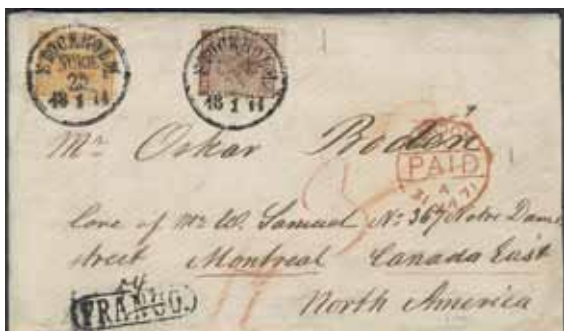 STOCKHOLM
22
18 1 71
STOCKHOLM
18 1 71
Mr Oskar Bodén
PAID
A
71
Care of Mr W. Samuel No 367 Notre Dame
street Montreal Canada East
FRANCO.
North America